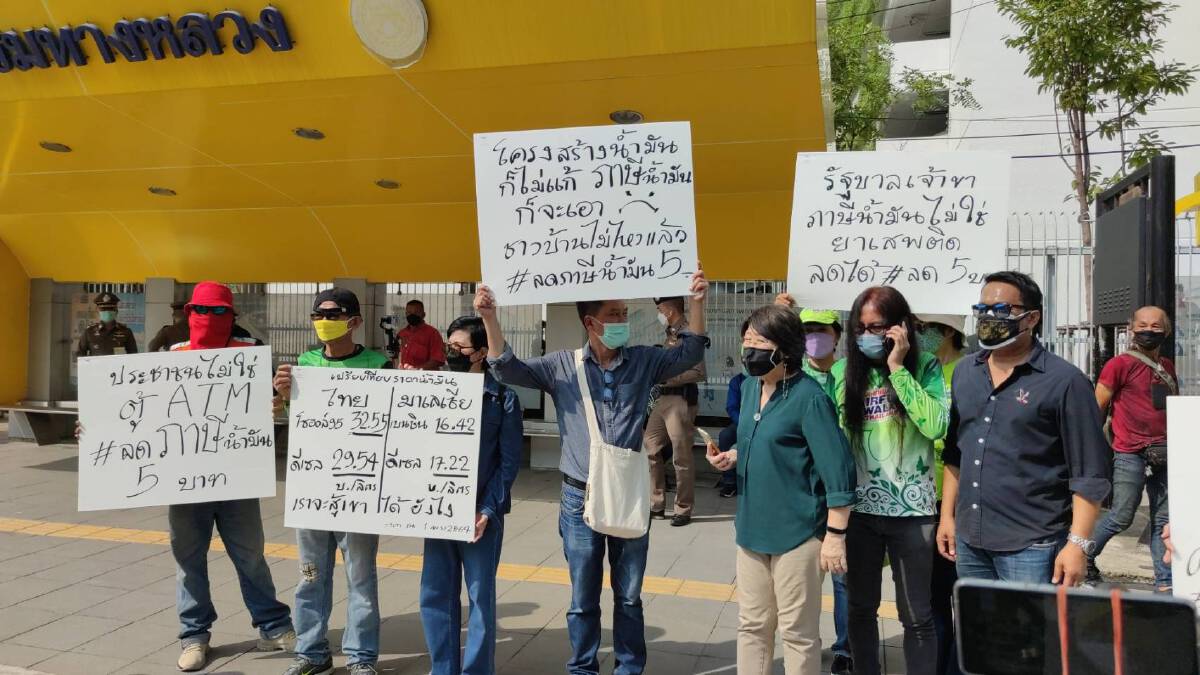 มทางหลวง
ประชาชนไม่ใช่
ตู้ ATM
#ลดภาษีน้ำมัน
5 บาท
เปรียบเทียบราคาน้ำมัน
ไทย
โซฮอล์95 32.55
ดีเซล 29.54
บ./ลิตร
มาเลเซีย
เบนซิน 16.42
ดีเซล 17.22
บ./ลิตร
เราจะสู้เขาได้ยังไง
โครงสร้างน้ำมัน
ก็ไม่แก้ ภาษีน้ำมัน
ก็จะเอา
ชาวบ้านไม่ไหวแล้ว
#ลดภาษีน้ำมัน 5.
รัฐบาลเจ้าขา
ภาษีน้ำมันไม่ใช่
ยาเสพติด
ลดได้ #ลด 5บ